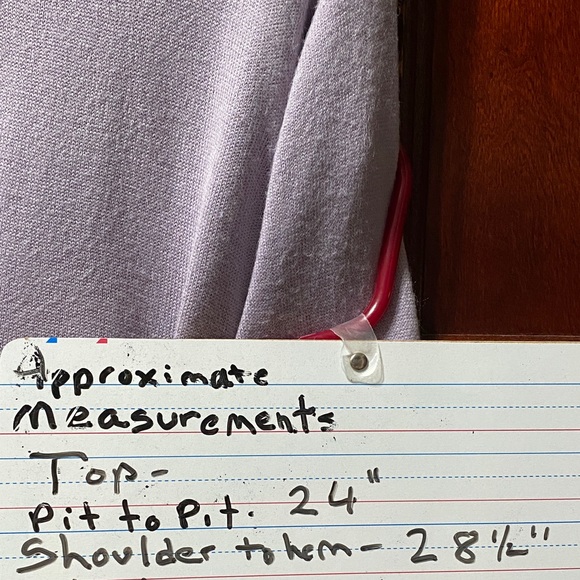 Approximate
Measurements
Top-
Pit to Pit. 24"
Shoulder to hem- 28 1/2"